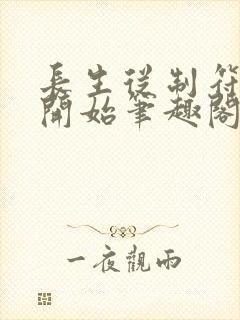 長生從制符
開始筆趣閣
一夜觀雨